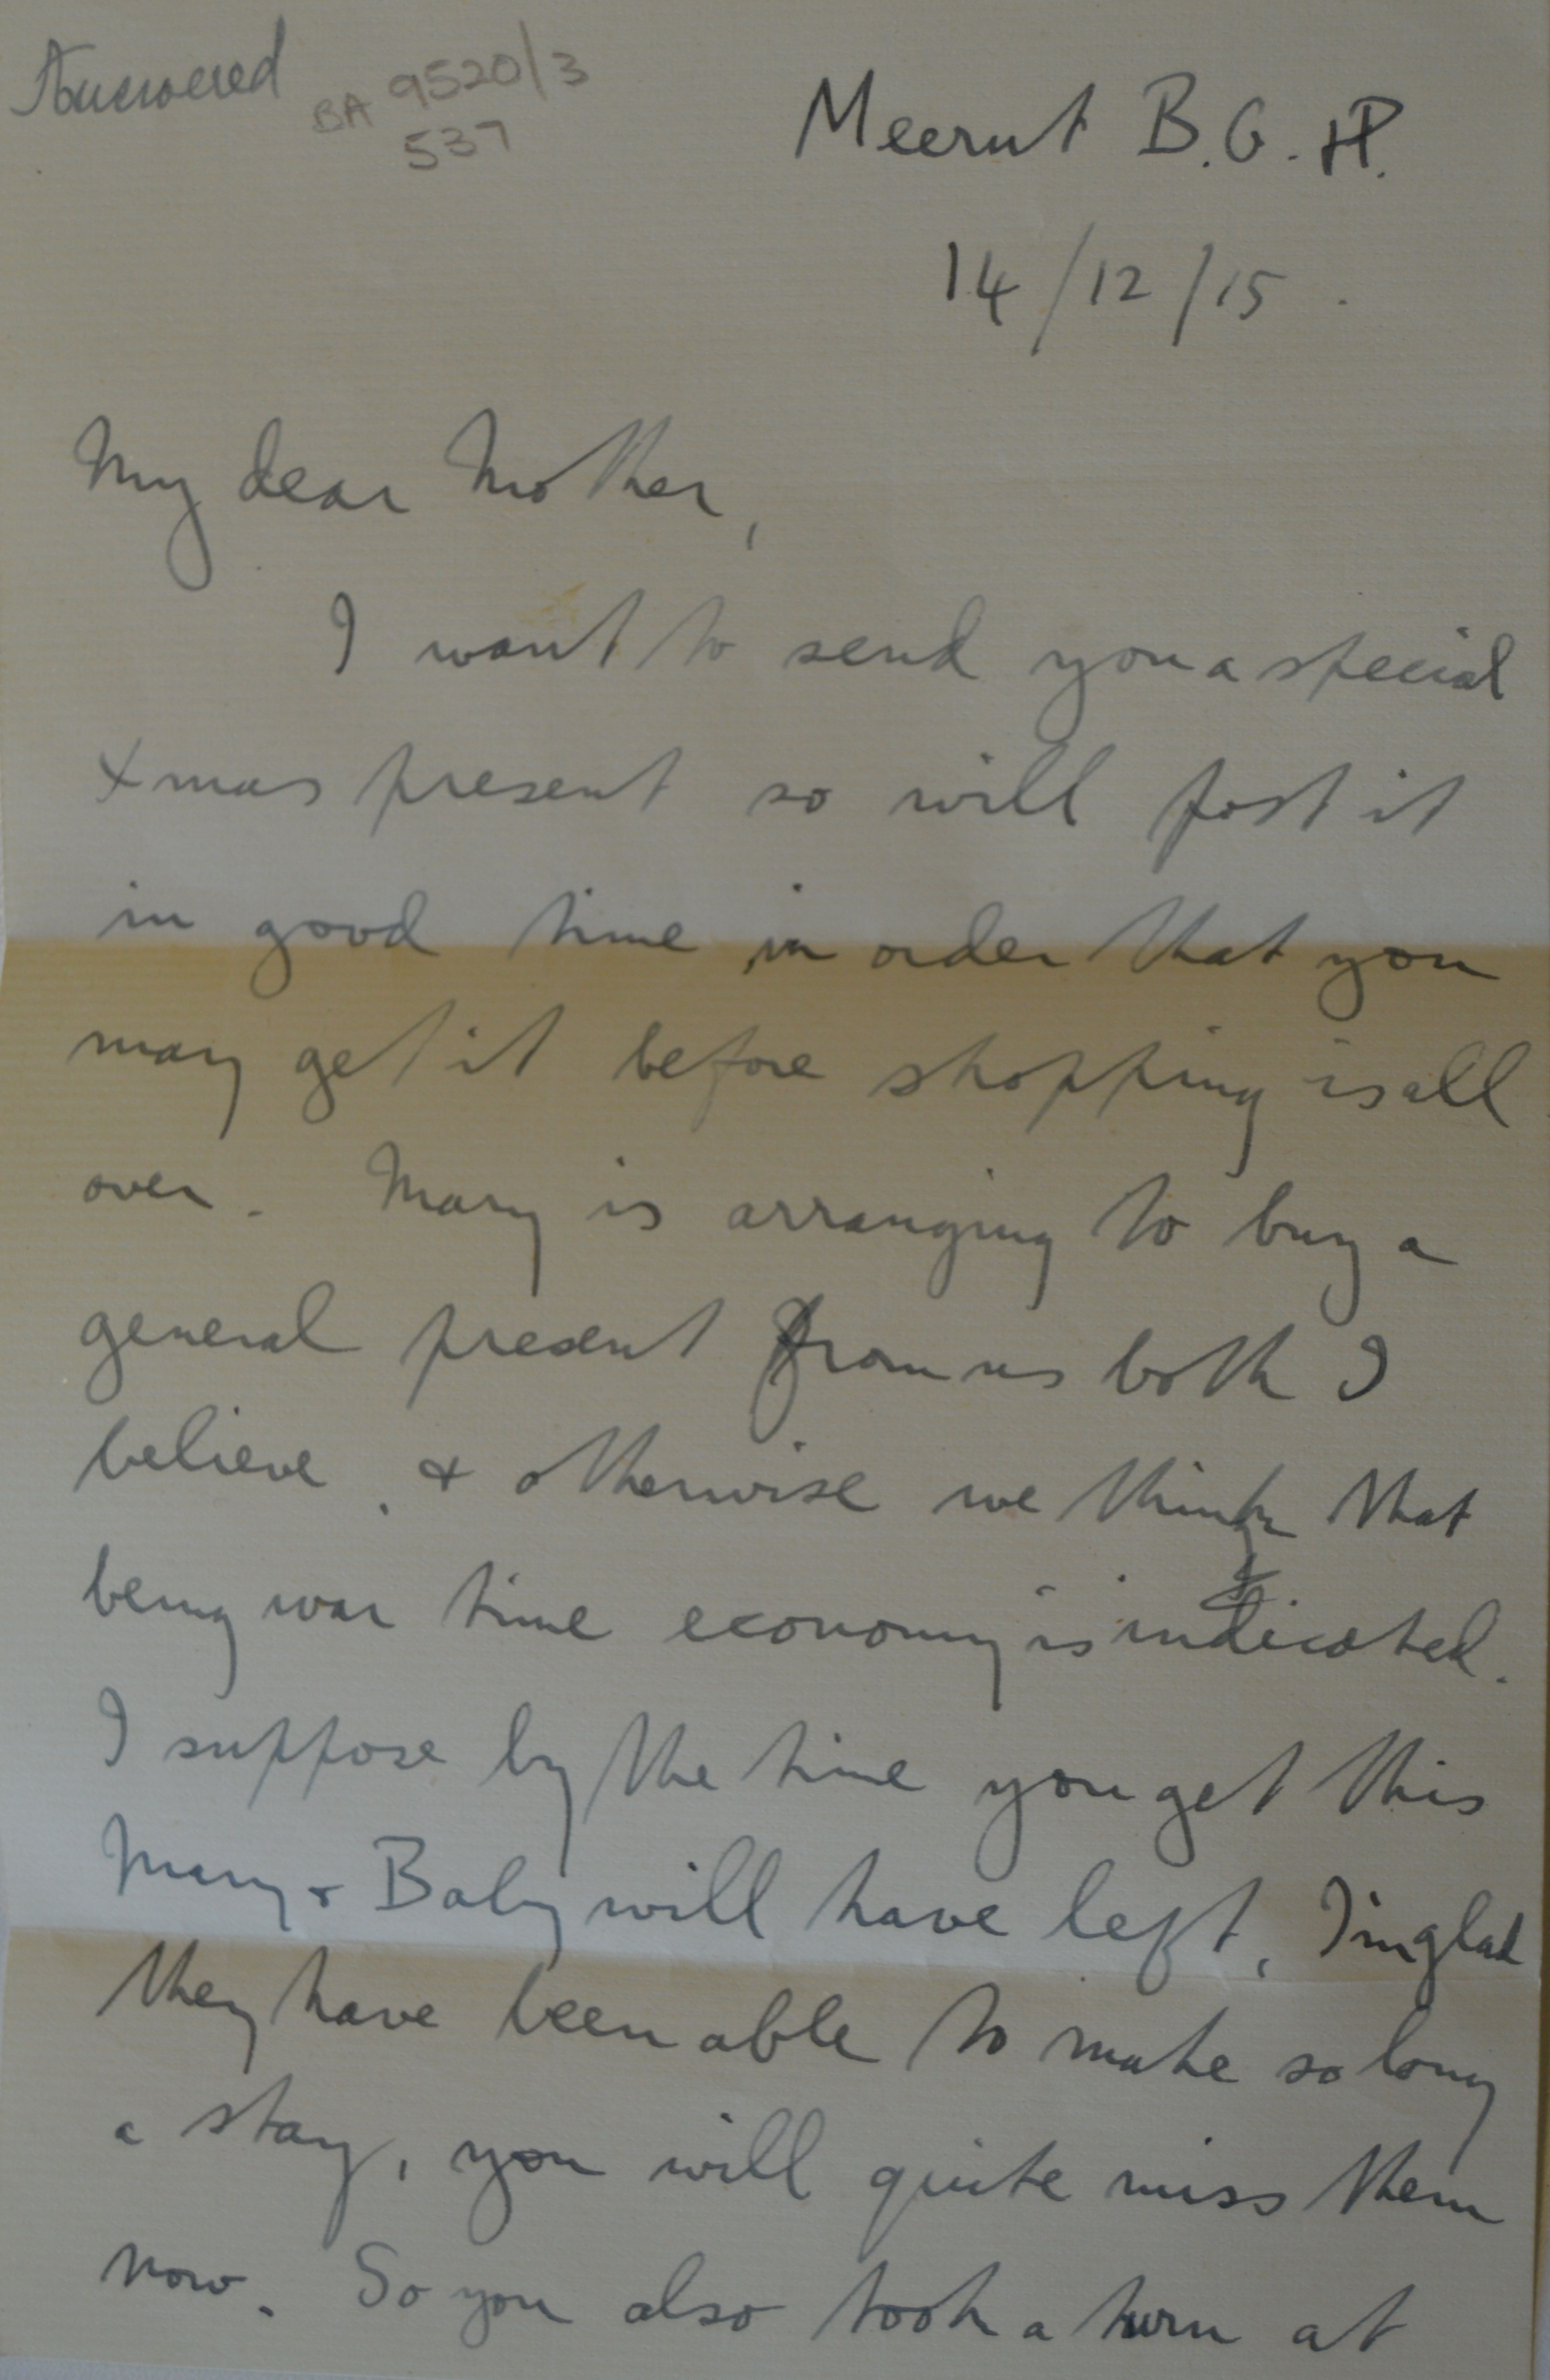 Answered
BA 9520/3
537
Meerut B.G.H.
14/12/15.
My dear Mother,
I want to send you a special
Xmas present so will post it
in good time in order that you
may get it before shopping is all
over. Mary is arranging to buy a
general present from us both I
believe, & otherwise we think that
being war time economy is indicated.
I suppose by the time you get this
Mary & Baby will have left, I'm glad
they have been able to make so long
a stay, you will quite miss them
now. So you also took a turn at